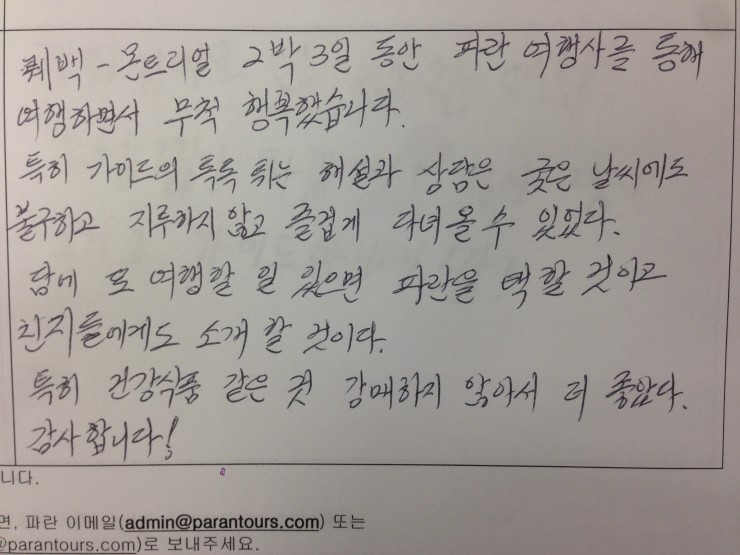 퀘백 - 몬트리얼 2박 3일 동안 파란 여행사를 통해
여행하면서 무척 행복했습니다.
특히 가이드의 톡톡 튀는 해설과 상담은 궂은 날씨에도
불구하고 지루하지 않고 즐겁게 다녀올 수 있었다.
담에 또 여행할 일 있으면 파란을 택할 것이고
친지들에게도 소개 할 것이다.
특히 건강식품 같은 것 강매하지 않아서 더 좋았다.
감사합니다!
니다.
면, 파란 이메일(admin@parantours.com) 또는
@parantours.com)로 보내주세요.